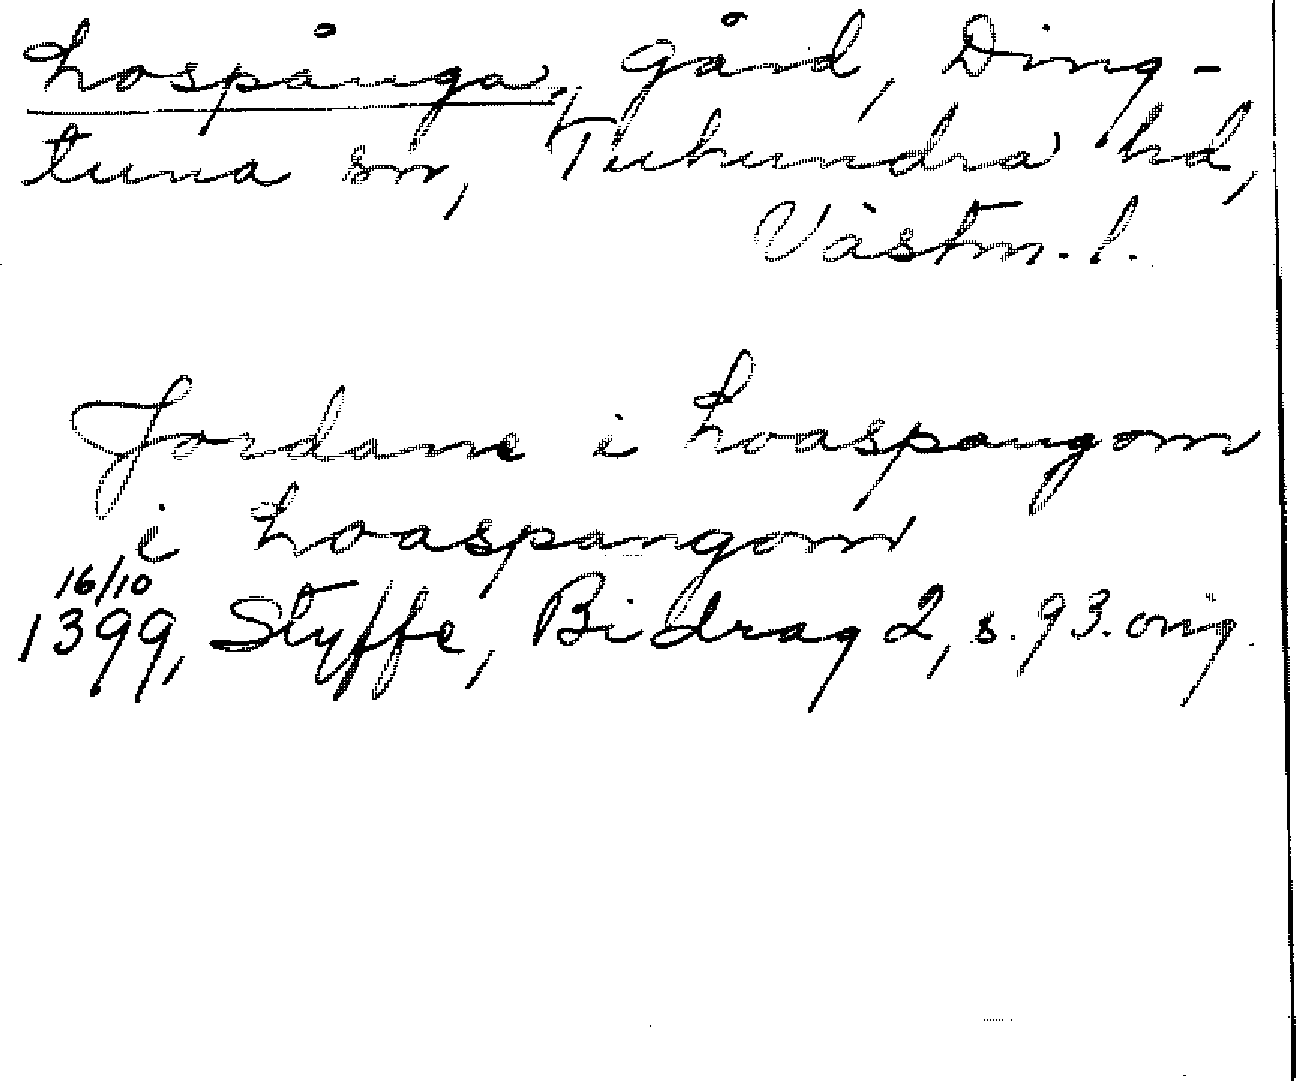 Lospånga, gård, Ding-
tuna sn, Tuhundra hd,
Västm. l.
Jordane i Loaspangom
i Loaspangom
16/10
1399, Styffe, Bidrag 2, s. 93. orig.